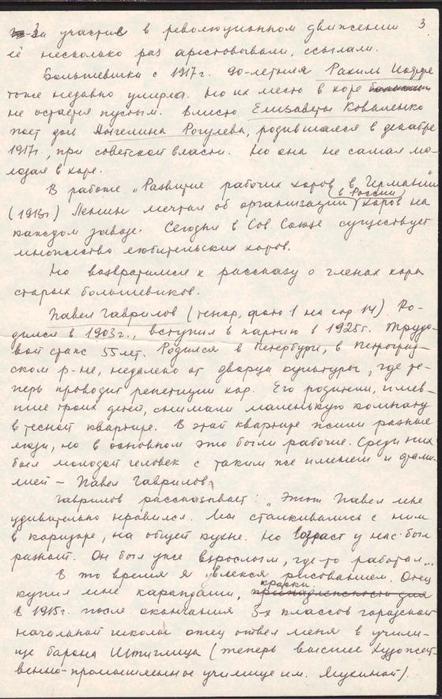 3
За участие в революционном движении
её несколько раз арестовывали, ссылали.
Большевика с 1917г. 90-летняя Рахиль
тоже недавно умерла. Но их место в хоре
не остаётся пустым. Вместо Елизаветы Коваленко
поёт дол Ангелина Рогулева, родившаяся в декабре
1917г, при советской власти. Но она не самая мо-
лодая в хоре.
В работе "Развитие рабочих хоров в Германии"
(1913г) Ленин мечтал об организации (в России) хоров на
каждом заводе. Сегодня в Сов Союзе существует
множество любительских хоров.
Но возвратимся к рассказу о членах хора
старых большевиков.
Павел Гаврилов (тенор, фото 1 на стр 14). Ро-
дился в 1903г., вступил в партию в 1925г. Трудо-
вой стаж 55 лет. Родился в Петербурге, в Петроград-
ском р-не, недалеко от дворца культуры, где те-
перь проводит репетиции хор. Его родители, имев-
шие троих детей, снимали маленькую комнату
в тесной квартире. В этой квартире жили разные
люди, но в основном это были рабочие. Среди них
был молодой человек с таким же именем и фами-
лией - Павел Гаврилов.
Гаврилов рассказывает: "Этот Павел мне
удивительно нравился. Мы сталкивались с ним
в коридоре, на общей кухне. Но возраст у нас был
разный. Он был уже взрослым, где-то работал...
В то время я увлекся рисованием. Отец
купил мне карандаши, краски
в 1915г. после окончания 3-х классов городской
начальной школы отец отвел меня в учили-
ще барона Штиглица (теперь высшее художест-
венно-промышленное училище им. Мухиной).